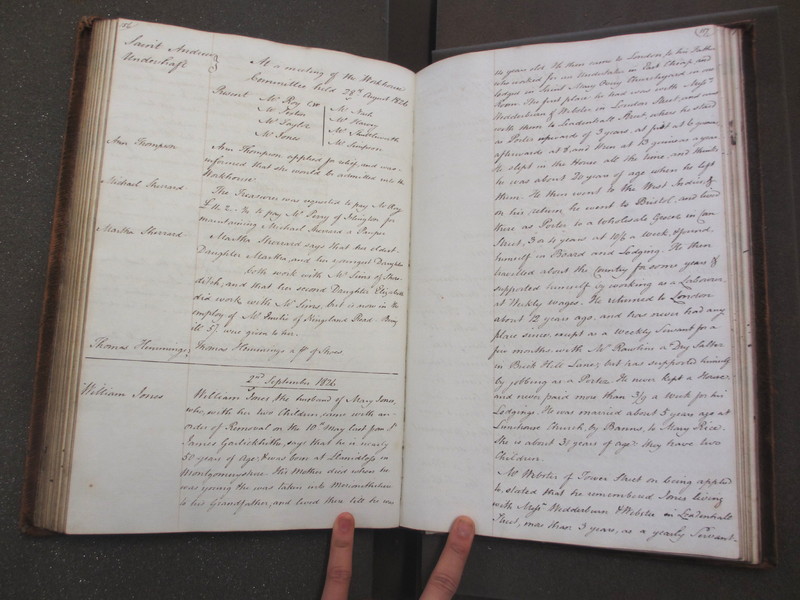 Saint Andrew
Undershaft
At a meeting of the Workhouse
Committee held 28th August 1826
Present Mr Roy CW Mr Nash
Mr Foster Mr Harvey
Mr Taylor Mr Shuttleworth
Mr Jones Mr Simpson
Ann Thompson
Ann Thompson applied for relief, and was
informed that she would be admitted into the
Workhouse.
Michael Sherrard
The Treasurer was requested to pay Mr Roy
to pay Mr Perry of Islington for
maintaining Michael Sherrard a Pauper.
Martha Sherrard
Martha Sherrard says that her eldest
Daughter Martha, and her youngest Daughter
both work with Mr Sims of Shore
ditch, and that her second Daughter Elizabeth
did work with Mr Sims, but is now in the
employ of Mr of Kingsland Road.
5/. was given to her.
Thomas Hemmings
Thomas Hemmings a pr of Shoes.
2nd September 1826
William Jones
William Jones, the husband of Mary Jones,
who, with her two Children, came with an
order of Removal on the 10th May last from St
James Garlickhithe, says that he is nearly
50 years of Age, & was born at Llanidloes in
Montgomeryshire. His Mother died when he
was young & he was taken into Merionethshire
to his Grandfather, and lived there till he was
14 years old. He then came to London, to his Father
who worked for an Undertaker in East Cheap and
lodged in Saint Mary Church yard in one
Room. The first place he had was with Messrs
Wedderburn & Webster in London Street, and was
with them to Leadenhall Street, where he staid
as Porter upwards of 3 years, at first at 6 guineas
afterwards at 8, and then at 13 guineas a year.
He slept in the House all the time, and thinks
he was about 20 years of age when he left
them. He then went to the West Indies, &
on his return, he went to Bristol, and lived
there as Porter to a Wholesale Grocer in
Street, 3 or 4 years at 11/6 a week, & found
himself in Board and Lodging. He then
travelled about the Country for some years &
supported himself by working as a Labourer,
at Weekly wages. He returned to London
about 12 years ago, and has never had any
place since, except as a Weekly Servant for a
few months with Mr Rawlins a Dry Salter
in Bush Lane, but has supported himself
by jobbing as a Porter. He never kept a House,
and never paid more than 3/9 a week for his
Lodgings. He was married about 5 years ago at
Limehouse Church, by Banns, to Mary Rice.
She is about 31 years of age. They have two
Children.
Mr Webster of Tower Street on being applied
to, stated that he remembered Jones living
with Messrs Wedderburn & Webster in Leadenhall
Street, more than 3 years, as a yearly Servant.